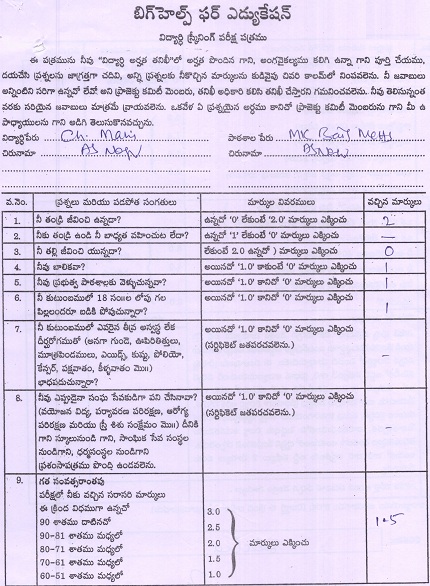 బిగ్‌హెల్ప్ ఫర్ ఎడ్యుకేషన్
విద్యార్థి స్క్రీనింగ్ పరీక్ష పత్రము
ఈ పత్రమును నీవు "విద్యార్థి అర్హత తనిఖీ"లో అర్హత పొందిన గాని, అంగవైకల్యము కలిగి ఉన్నా గాని పూర్తి చేయము,
దయచేసి ప్రశ్నలను జాగ్రత్తగా చదివి, అన్ని ప్రశ్నలకు నీకొచ్చిన మార్కులను కుడివైపు చివరి కాలమ్‌లో నింపవలెను. నీ జవాబులు
అన్నింటిని సరిగా ఉన్నవో లేవో అని ప్రాజెక్టు కమిటీ మెంబరు, తనిఖీ అధికారి కలిసి తనిఖీ చేస్తారని గమనించవలెను. నీవు తెలిసున్నంత
వరకు సరియైన జవాబులు మాత్రమే వ్రాయవలెను. ఒకవేళ ఏ ప్రశ్నయైన అర్థము కానిదో ప్రాజెక్టు కమిటీ మెంబరును గాని మీ ఉ
పాధ్యాయులను గాని అడిగి తెలుసుకొనవచ్చును.
విద్యార్థిపేరు Ch. Mani పాఠశాల పేరు MK
చిరునామా చిరునామా
వ.నెం. ప్రశ్నలు మరియు పడపోత సంగతులు మార్కుల వివరములు వచ్చిన మార్కులు
1. నీ తండ్రి జీవించి ఉన్నదా? ఉన్నదో '0' లేకుంటే '2.0' మార్కులు ఎక్కించు 2
2. నీకు తండ్రి ఉండి నీ బాధ్యత వహించుట లేదా? ఉన్నదో '1' లేకుంటే '0' మార్కులు ఎక్కించు –
3. నీ తల్లి జీవించి యున్నదా? లేకుంటే 2.0 ఉన్నదో ) మార్కులు ఎక్కించు 0
4. నీవు బాలికవా? అయినదో '1.0' కాకుంటే '0' మార్కులు ఎక్కించు 1
5. నీవు ప్రభుత్వ పాఠశాలకు వెళ్ళుచున్నవా? అయినదో '1.0' కానిదో '0' మార్కులు ఎక్కించు 1
6. నీ కుటుంబములో 18 సం॥ల లోపు గల అయినదో '1.0' కానిదో '0' మార్కులు ఎక్కించు 1
పిల్లలందరూ బడికి పోవుచున్నారా?
7. నీ కుటుంబములో ఎవరైన తీవ్ర అస్వస్థ లేక అయినదో '1.0' కానిదో '0' మార్కులు ఎక్కించు –
దీర్ఘరోగముతో (అనగా గుండె, ఊపిరితిత్తులు, (సర్టిఫికెట్ జతపరచవలెను.)
మూత్రపిండములు, ఎయిడ్స్, కుష్టు, పోలియో,
కేన్సర్, పక్షవాతం, కీళ్ళవాతం మొ॥)
భాధపడుచున్నారా?
8. నీవు ఎప్పుడైనా సంఘ సేవకుడిగా పని చేసినావా? అయినదో '1.0' కానిదో '0' మార్కులు ఎక్కించు –
(వయోజన విద్య, పర్యావరణ పరిరక్షణ, ఆరోగ్య (సర్టిఫికెట్ జతపరచవలెను.)
పరిరక్షణ మరియు స్త్రీ శిశు సంక్షేమం మొ॥) దీనికి
గాని స్కూలునుండి గాని, సాంఘిక సేవ సంస్థల
నుండిగాని, ధర్మసంస్థల నుండిగాని
ప్రశంసాపత్రము పొంది ఉండవలెను.
9. గత సంవత్సరాంతపు
పరీక్షలో నీకు వచ్చిన సరాసరి మార్కులు
ఈ క్రింద విధముగా ఉన్నచో
90 శాతము దాటినచో 3.0
90-81 శాతము మధ్యలో 2.5
80-71 శాతము మధ్యలో 2.0 మార్కులు ఎక్కించు 1.5
70-61 శాతము మధ్యలో 1.5
60-51 శాతము మధ్యలో 1.0